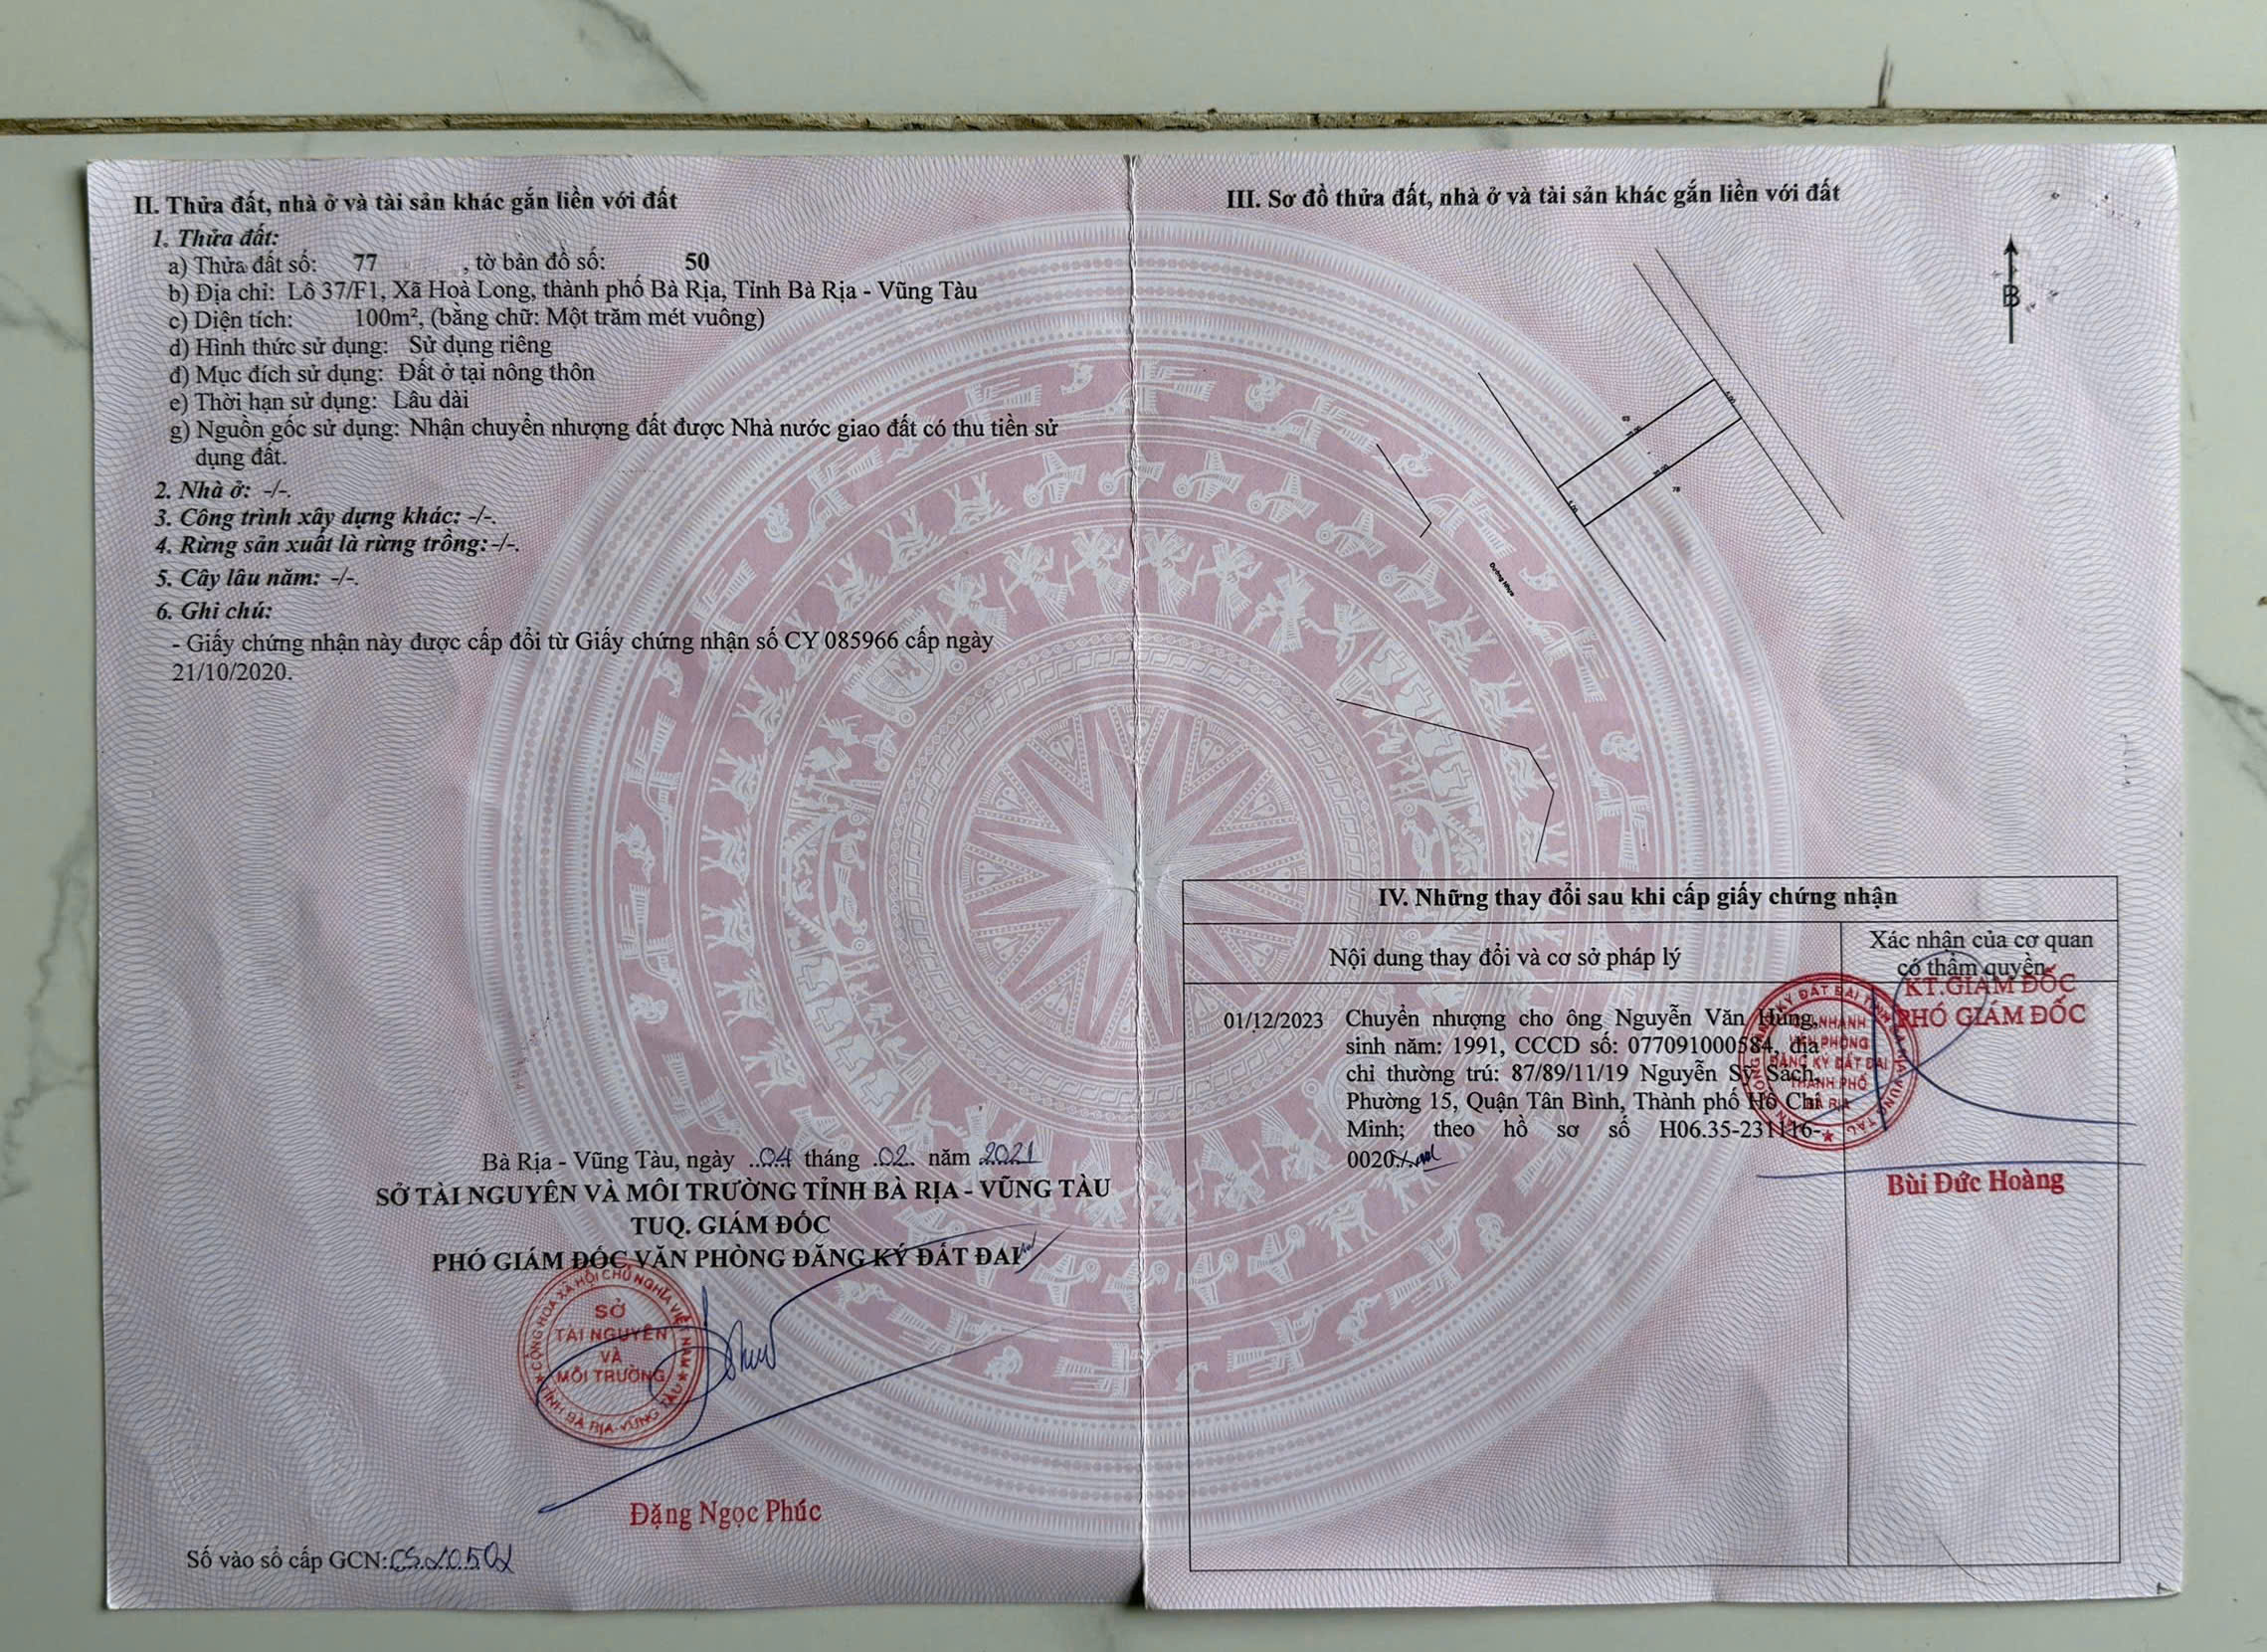 II. Thửa đất, nhà ở và tài sản khác gắn liền với đất
1. Thửa đất:
a) Thửa đất số: 77 , tờ bản đồ số: 50
b) Địa chỉ: Lô 37/F1, Xã Hoà Long, thành phố Bà Rịa, Tỉnh Bà Rịa - Vũng Tàu
c) Diện tích: 100m², (bằng chữ: Một trăm mét vuông)
d) Hình thức sử dụng: Sử dụng riêng
đ) Mục đích sử dụng: Đất ở tại nông thôn
e) Thời hạn sử dụng: Lâu dài
g) Nguồn gốc sử dụng: Nhận chuyển nhượng đất được Nhà nước giao đất có thu tiền sử
dụng đất.
2. Nhà ở: -/-.
3. Công trình xây dựng khác: -/-.
4. Rừng sản xuất là rừng trồng:-/-.
5. Cây lâu năm: -/-.
6. Ghi chú:
- Giấy chứng nhận này được cấp đổi từ Giấy chứng nhận số CY 085966 cấp ngày
21/10/2020.
Bà Rịa - Vũng Tàu, ngày 04 tháng 02 năm 2021
SỞ TÀI NGUYÊN VÀ MÔI TRƯỜNG TỈNH BÀ RỊA - VŨNG TÀU
TUQ. GIÁM ĐỐC
PHÓ GIÁM ĐỐC VĂN PHÒNG ĐĂNG KÝ ĐẤT ĐAI
CỘNG HOÀ XÃ HỘI CHỦ NGHĨA VIỆT NAM
SỞ
TÀI NGUYÊN
VÀ
MÔI TRƯỜNG
TỈNH BÀ RỊA-VŨNG TÀU
Đặng Ngọc Phúc
Số vào sổ cấp GCN:
III. Sơ đồ thửa đất, nhà ở và tài sản khác gắn liền với đất
B
78
Đường Nhựa
IV. Những thay đổi sau khi cấp giấy chứng nhận
Nội dung thay đổi và cơ sở pháp lý
Xác nhận của cơ quan
có thẩm quyền
01/12/2023 Chuyển nhượng cho ông Nguyễn Văn Hùng,
sinh năm: 1991, CCCD số: 077091000584, địa
chỉ thường trú: 87/89/11/19 Nguyễn Sỹ Sách,
Phường 15, Quận Tân Bình, Thành phố Hồ Chí
Minh; theo hồ sơ số H06.35-231116-
0020./.
KT.GIÁM ĐỐC
PHÓ GIÁM ĐỐC
CHI NHÁNH
VĂN PHÒNG
ĐĂNG KÝ ĐẤT ĐAI
THÀNH PHỐ
BÀ RỊA
Bùi Đức Hoàng